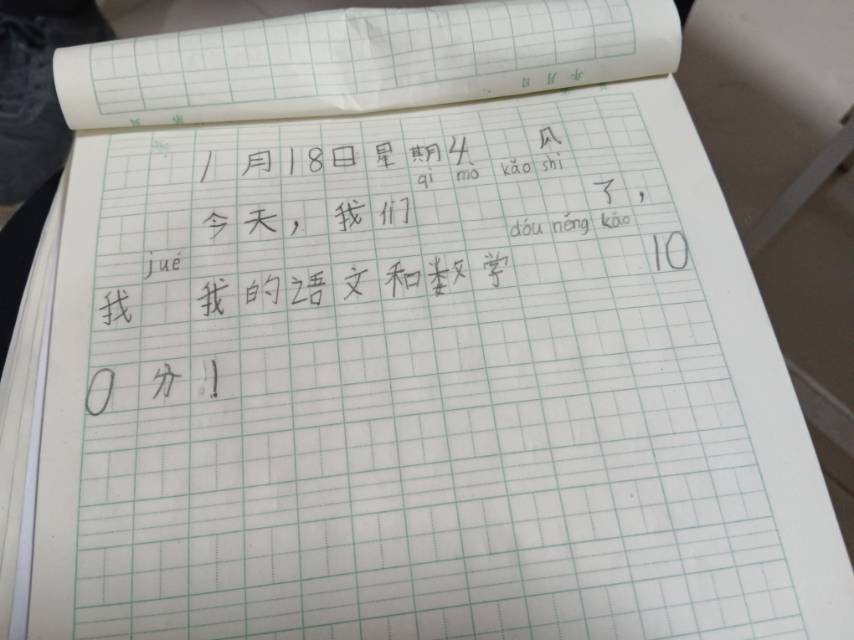 1月18日星期4 风
qì mò kǎo shì
今天，我们 了，
dóu néng kǎo
jué
我 我的语文和数学 10
0分！